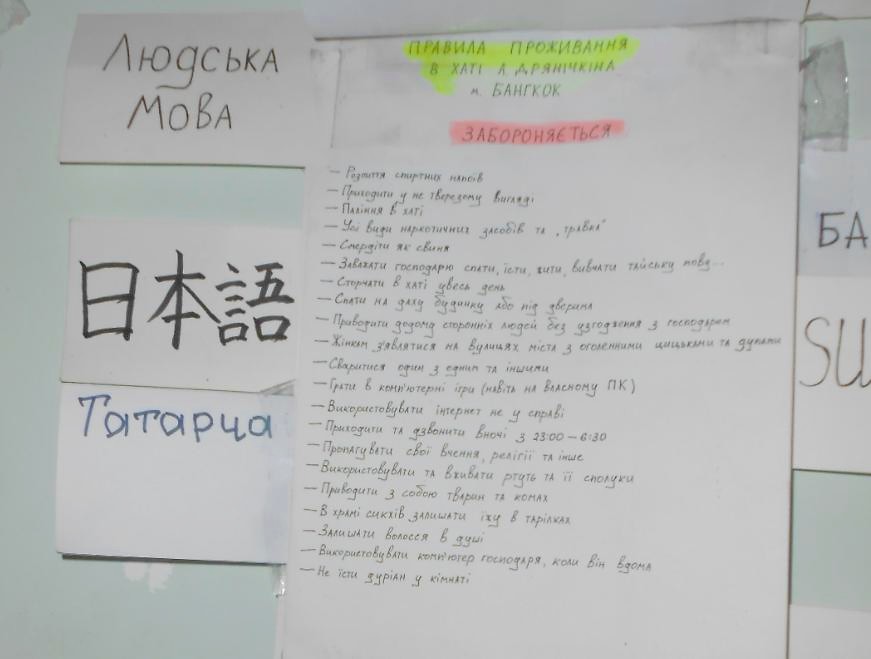 Людська
мова
日本語
Татарча
ПРАВИЛА ПРОЖИВАННЯ
В ХАТІ А. ДРЯНІЧКІНА
м. БАНГКОК
ЗАБОРОНЯЄТЬСЯ
— Розпиття спиртних напоїв
— Приходити у не тверезому вигляді
— Паління в хаті
— Усі види наркотичних засобів та „травка"
— Смердіти як свиня
— Заважати господарю спати, їсти, жити, вивчати тайську мову...
— Сторчати в хаті увесь день
— Спати на даху будинку або під дверима
— Приводити додому сторонніх людей без узгодження з господарем
— Жінкам з'являтися на вулицях міста з оголенними цицьками та дупами
— Сваритися один з одним та іншими
— Грати в комп'ютерні ігри (навіть на власному ПК)
— Використовувати інтернет не у справі
— Приходити та дзвонити вночі з 23:00 – 6:30
— Пропагувати свої вчення, релігії та інше
— Використовувати та вживати ртуть та її сполуки
— Приводити з собою тварин та комах
— В храмі сикхів залишати їжу в тарілках
— Залишати волосся в душі
— Використовувати комп'ютер господаря, коли він вдома
— Не їсти дуріан у кімнаті
БА
SU